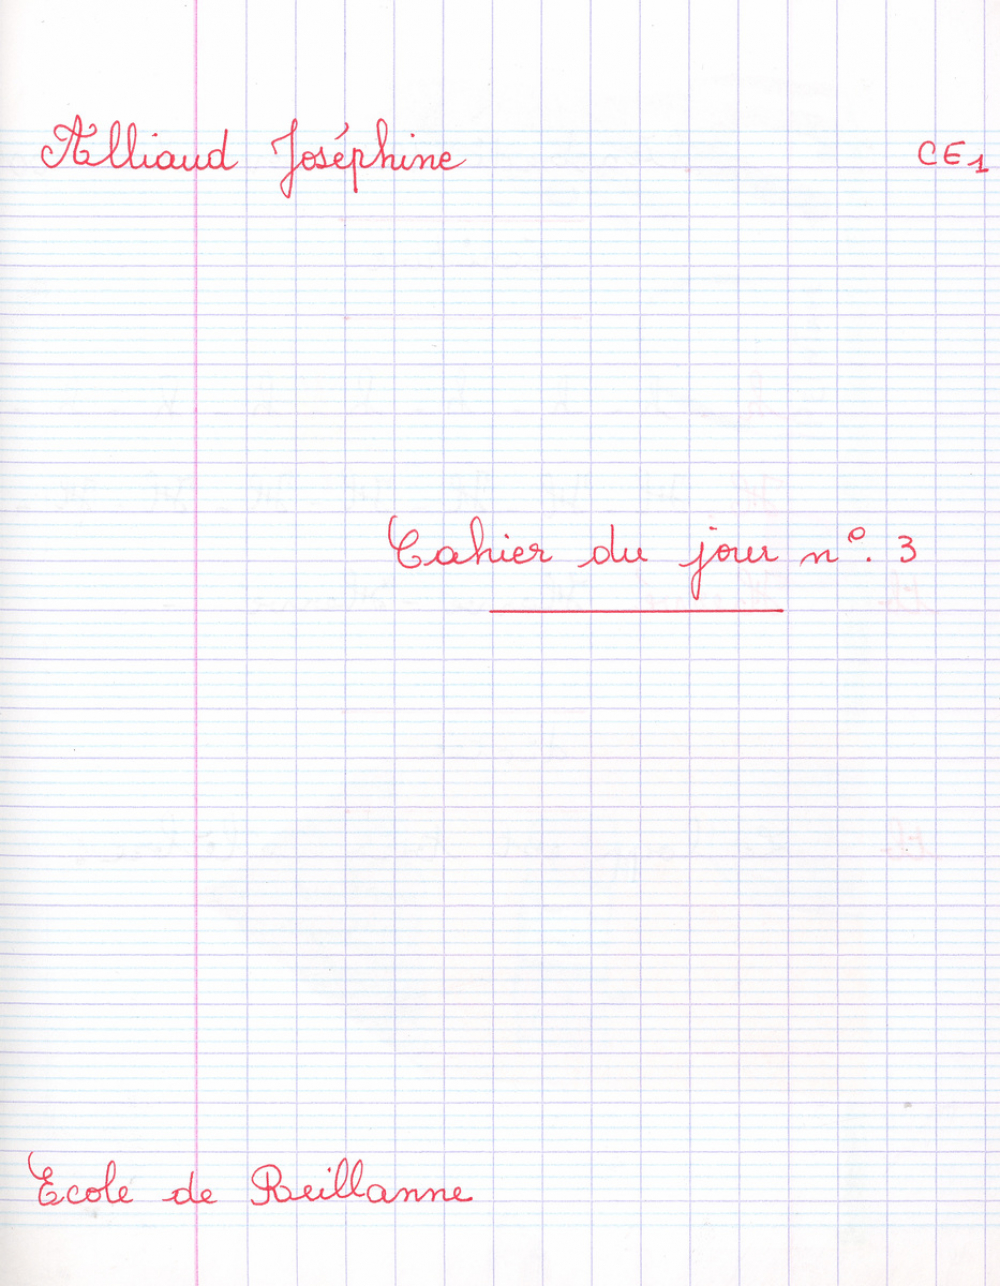 Alliaud Joséphine
CE1
Cahier du jour n°. 3
Ecole de Reillanne